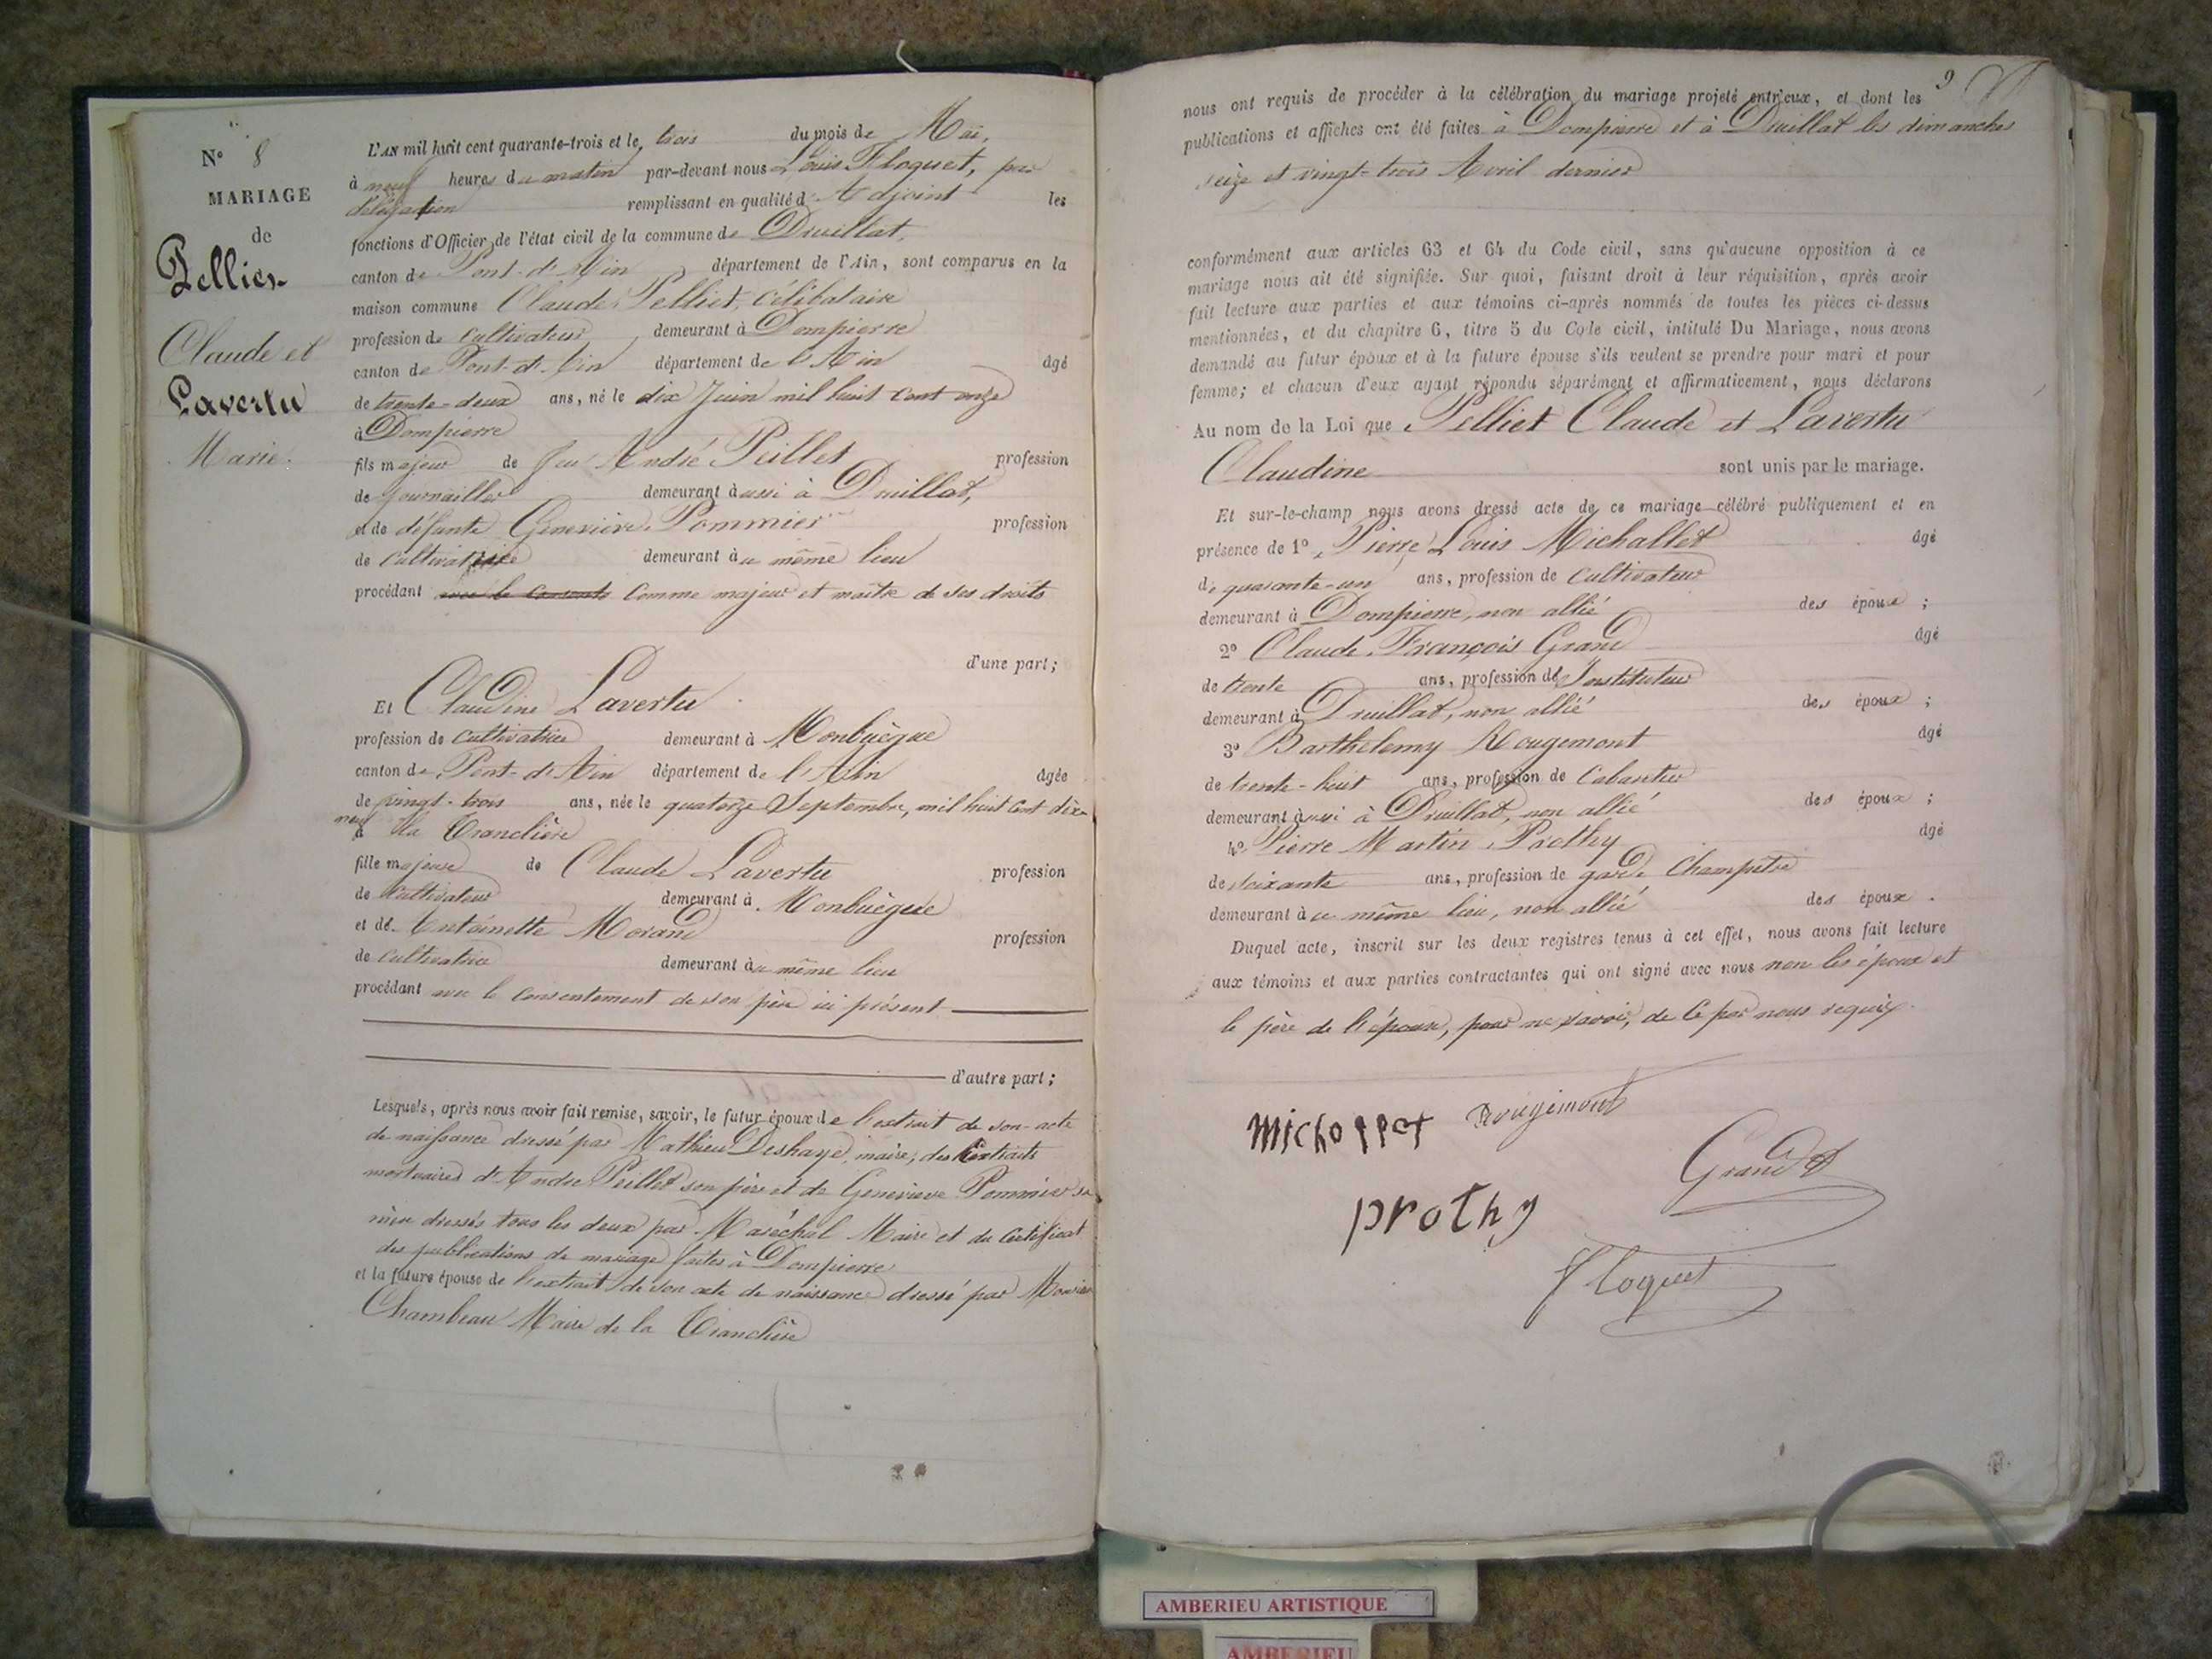 N° 8
MARIAGE
de
Pellier
Claude et
Lavertu
Marie.
L'AN mil huit cent quarante-trois et le trois du mois de Mai,
à neuf heures du matin par-devant nous Louis Floquet, par
délégation remplissant en qualité d'Adjoint les
fonctions d'Officier de l'état civil de la commune de Druillat,
canton de Pont-d'Ain département de l'Ain, sont comparus en la
maison commune Claude Pelliet, Célibataire
profession de Cultivateur demeurant à Dompierre
canton de Pont-d'Ain département de l'Ain âgé
de trente-deux ans, né le dix Juin mil huit cent onze
à Dompierre
fils majeur de feu André Peillet profession
de journaillier demeurant aussi à Druillat,
et de défunte Geneviève Pommier profession
de Cultivatrice demeurant au même lieu
procédant avec le Consente Comme majeur et maître de ses droits
d'une part;
Et Claudine Lavertu
profession de Cultivatrice demeurant à Monbuègue
canton de Pont-d'Ain département de l'Ain âgée
de vingt-trois ans, née le quatorze Septembre, mil huit Cent dix-
neuf à la Tranclière
fille majeure de Claude Lavertu profession
de Cultivateur demeurant à Monbuègue
et de Antoinette Morand profession
de Cultivatrice demeurant au même lieu
procédant avec le Consentement de son père ici présent
d'autre part;
Lesquels, après nous avoir fait remise, savoir, le futur époux de l'extrait de son acte
de naissance dressé par Mathieu Deshaye, maire, des Extraits
mortuaires d'André Peillet son père et de Geneviève Pommier sa
mère dressés tous les deux par Maréchal Maire et du Certificat
des publications de mariage faites à Dompierre
et la future épouse de l'extrait de son acte de naissance dressé par
Chambeau Maire de la Tranclière
9
nous ont requis de procéder à la célébration du mariage projeté entr'eux, et dont les
publications et affiches ont été faites à Dompierre et à Druillat les dimanches
seize et vingt-trois Avril dernier
conformément aux articles 63 et 64 du Code civil, sans qu'aucune opposition à ce
mariage nous ait été signifiée. Sur quoi, faisant droit à leur réquisition, après avoir
fait lecture aux parties et aux témoins ci-après nommés de toutes les pièces ci-dessus
mentionnées, et du chapitre 6, titre 5 du Code civil, intitulé Du Mariage, nous avons
demandé au futur époux et à la future épouse s'ils veulent se prendre pour mari et pour
femme; et chacun d'eux ayant répondu séparément et affirmativement, nous déclarons
Au nom de la Loi que Pelliet Claude et Lavertu
Claudine sont unis par le mariage.
Et sur-le-champ nous avons dressé acte de ce mariage célébré publiquement et en
présence de 1° Pierre Louis Michallet âgé
de quarante-un ans, profession de Cultivateur
demeurant à Dompierre, non allié des époux ;
2° Claude François Grand âgé
de trente ans, profession d'Instituteur
demeurant à Druillat, non allié des époux ;
3° Barthelemy Rougemont âgé
de trente-huit ans, profession de Cabantier
demeurant aussi à Druillat, non allié des époux ;
4° Pierre Martin Prothy âgé
de soixante ans, profession de garde Champêtre
demeurant au même lieu, non allié des époux.
Duquel acte, inscrit sur les deux registres tenus à cet effet, nous avons fait lecture
aux témoins et aux parties contractantes qui ont signé avec nous non les époux et
le père de l'épouse, pour ne savoir, de Ce par nous requis.
Michallet Rougemont
Grand
Prothy
Floquet
AMBERIEU ARTISTIQUE
AMBERIEU